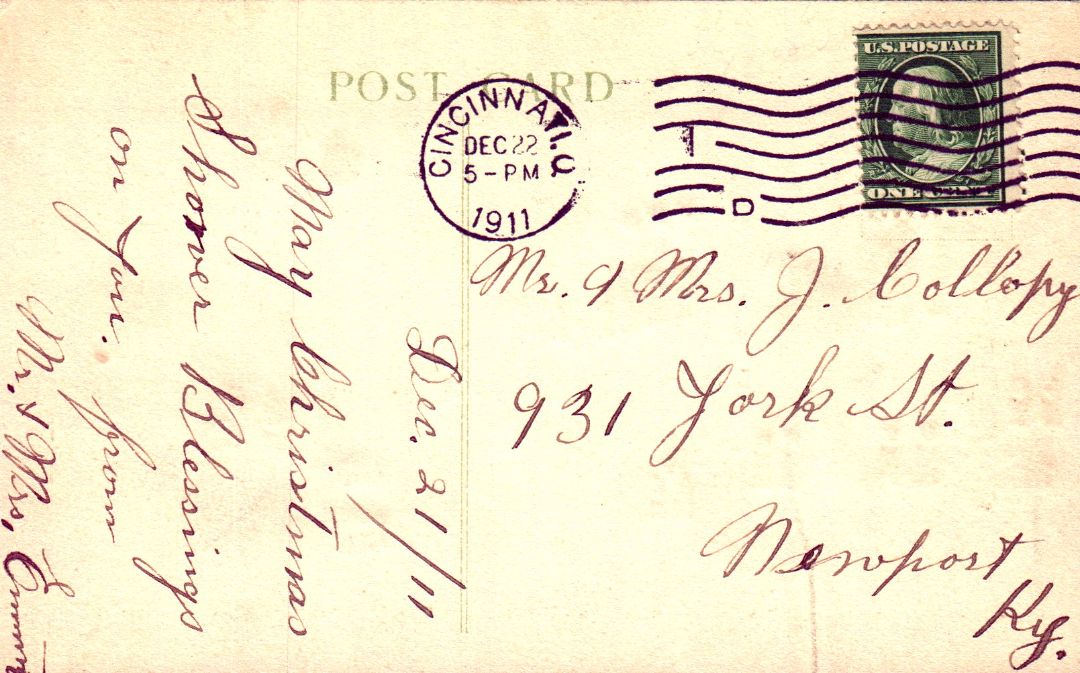 POST CARD
U.S. POSTAGE
ONE CENT
CINCINNATI, O
DEC 22
5 - PM
1911
1
D
Mr. & Mrs. J. Collopy
931 York St.
Newport
Ky.
Dec. 21/11
May Christmas
Shower Blessings
on You.
from
Mr. & Mrs.